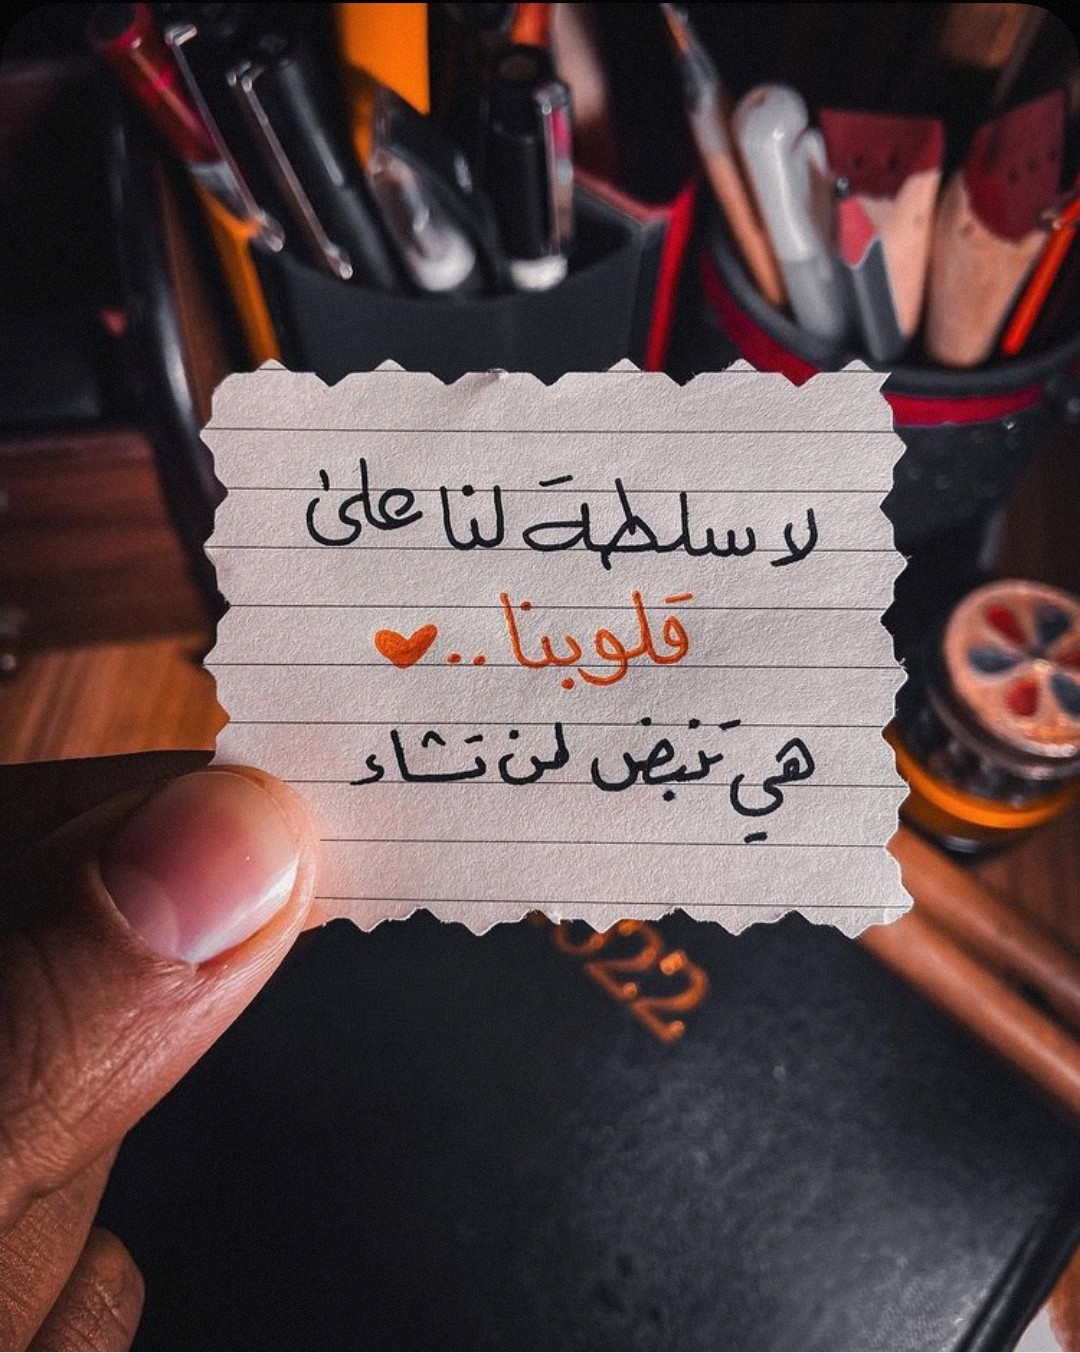 لا سلطة لنا على
قلوبنا..
هي تنبض لمن تشاء
2022